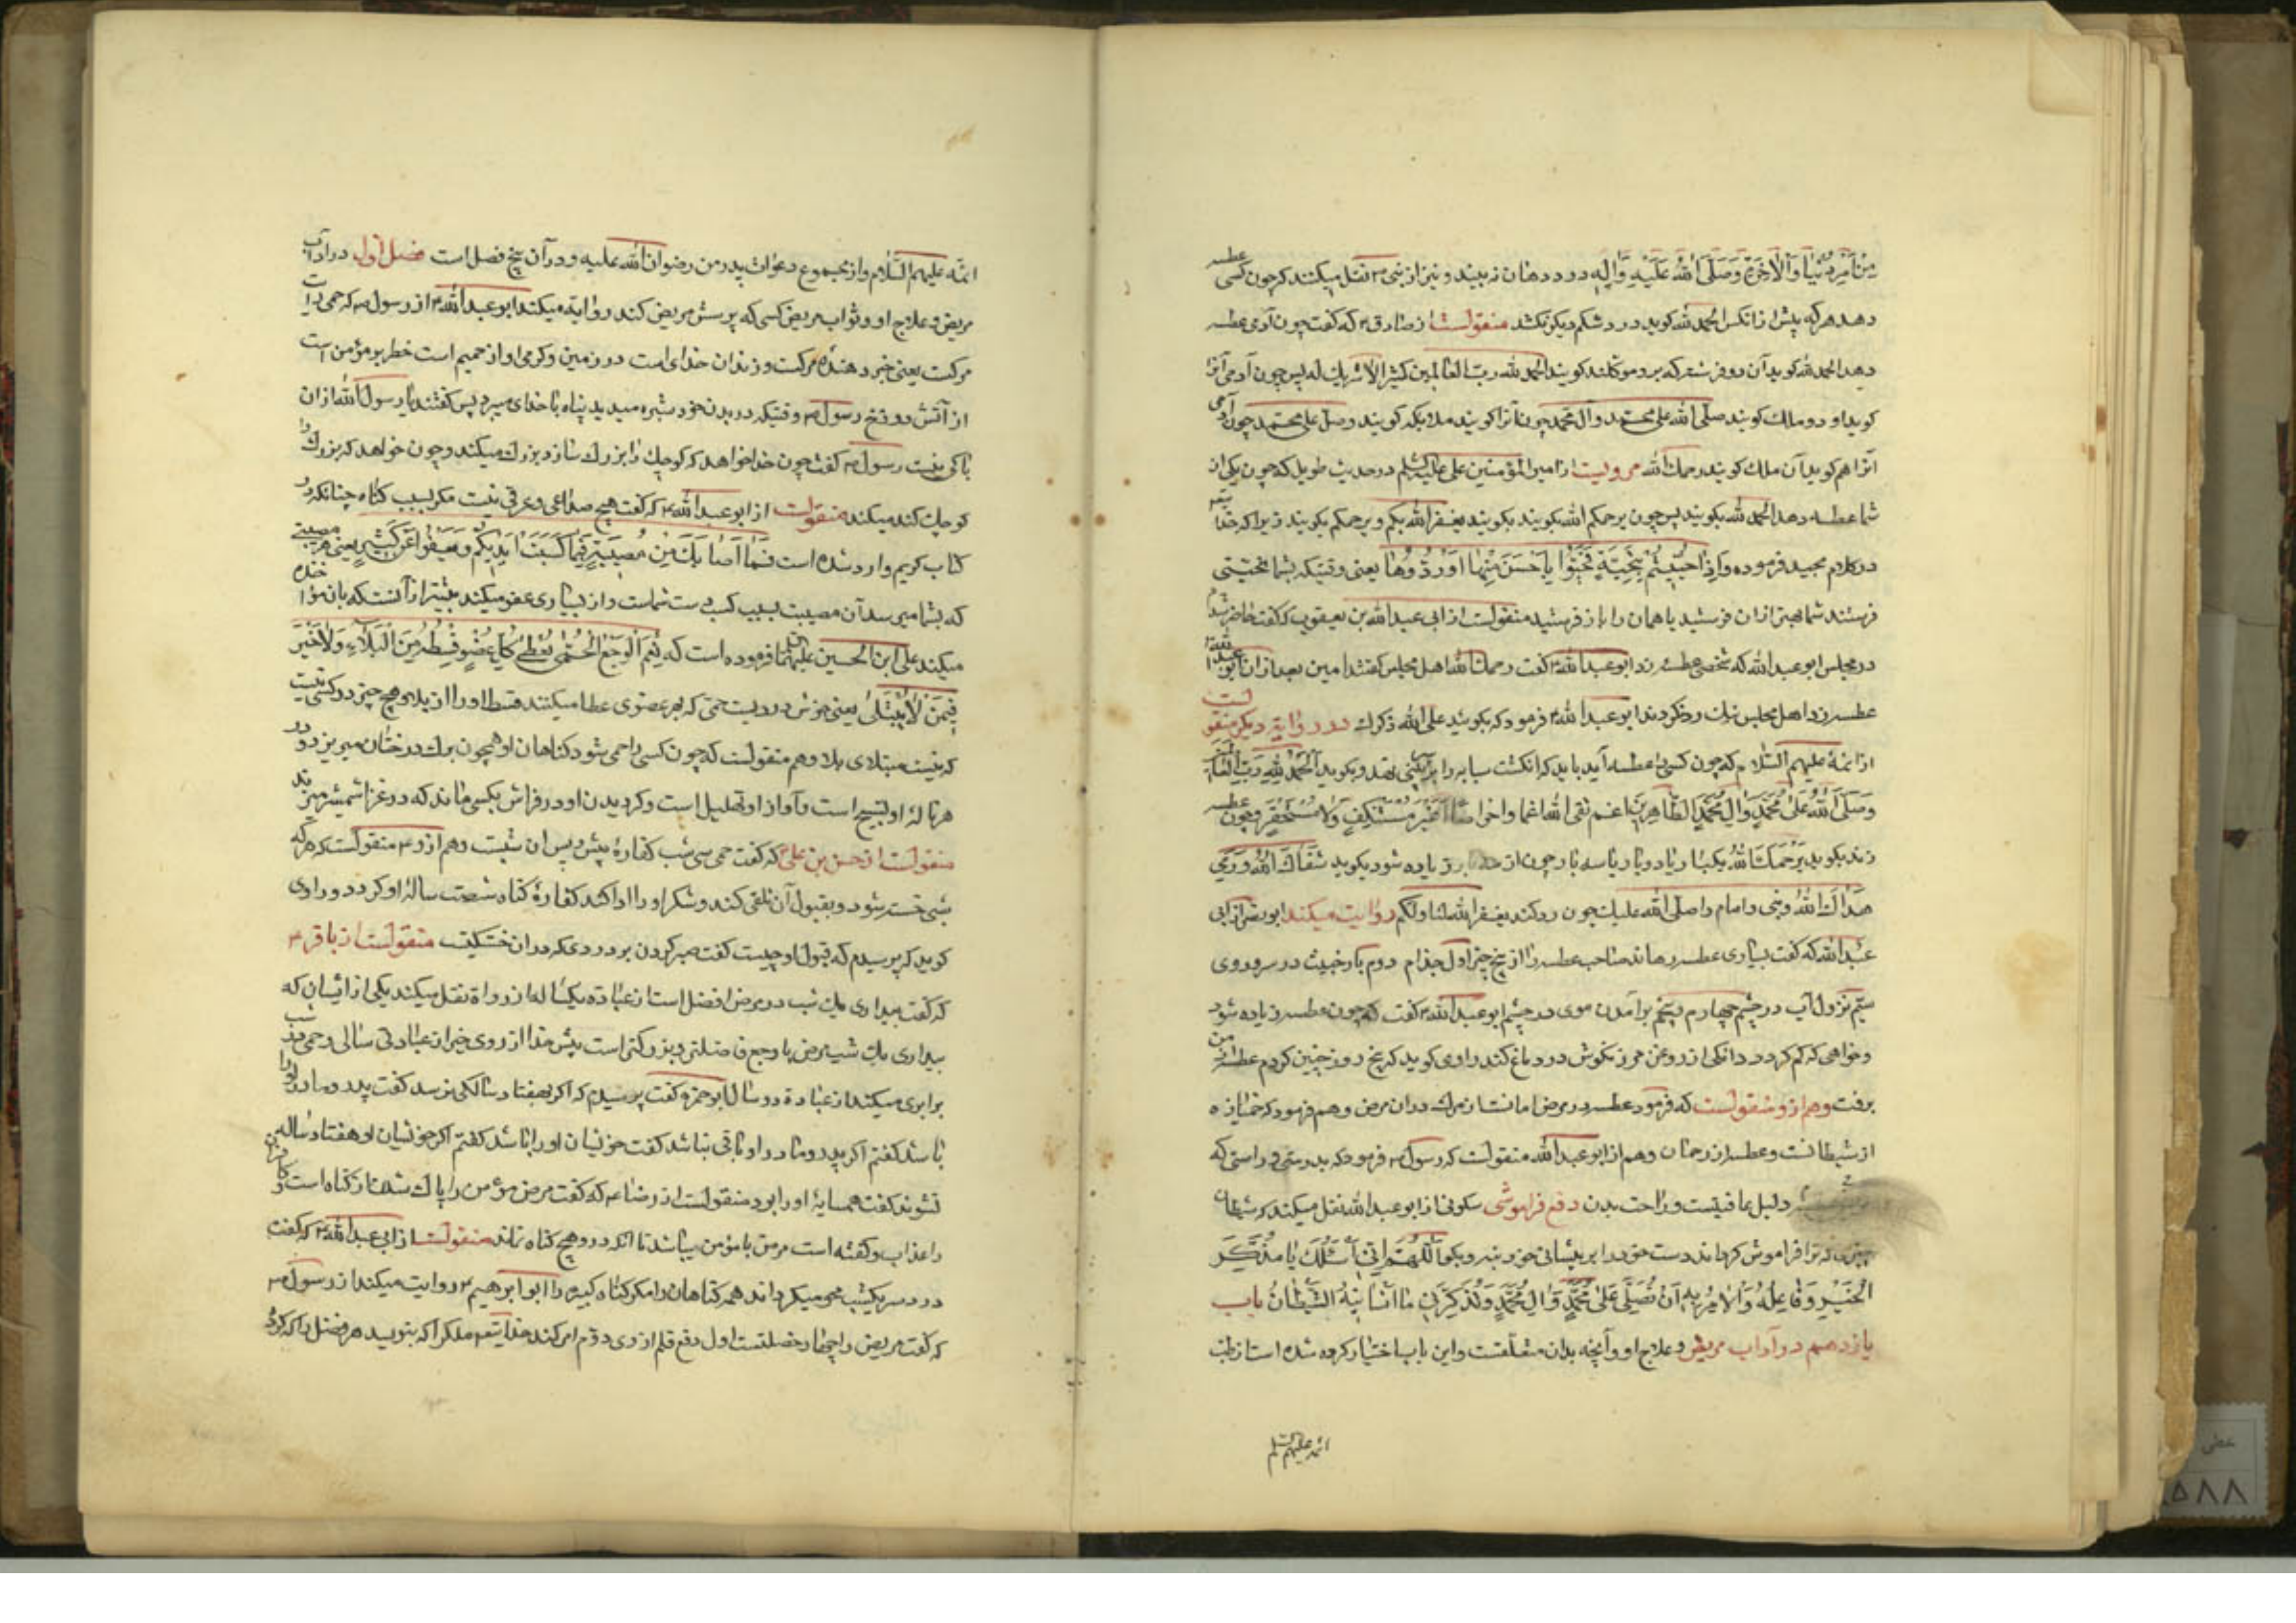 مِنْ اَمْرِ دُنْیَا وَالْاٰخِرَةِ وَصَلَّی اللّٰهُ عَلَیْهِ وَاٰلِهِ درد دهان نه بیند و نیز از نبی ص نقل میکنند که چون کسی عطسه
دهد هر که پیش از انکس الحمد لله کوید درد شکم دیکر نکشد منقولست از صادق ع که کفت چون آدمی عطسه
دهد الحمد لله کوید آن دو فرشته که برو موکلند کویند الحمد لله رب العالمین کثیرا لا شریك له پس چون آدمی آنرا
کوید او دو ملك کویند صلی الله علی محمد وآل محمد چون آنرا کویند ملایکه کویند وصل علی محمد چون آدمی
آنرا هم کوید آن ملك کویند رحمك الله مرویست از امیر المؤمنین علی علیه السلم در حدیث طویل که چون یکی از
شما عطسه دهد الحمد لله بکویید پس چون یرحمکم الله بکویند بکویید یغفر الله بکم ویرحمکم بکویند زیرا که خدا
در کلام مجید فرموده وَاِذَا حُیِّیْتُمْ بِتَحِیَّةٍ فَحَیُّوْا بِاَحْسَنَ مِنْهَا اَوْ رُدُّوْهَا یعنی وقتیکه بشما تحیتی
فرستند شما بهتر از ان فرستید یا همان را باز فرستید منقولست از ابی عبد الله بن یعیقوب که کفت حاضر شدم
در مجلس ابو عبد الله که شخصی عطسه زد ابو عبد الله ع کفت رحمك الله اهل مجلس کفتند امین بعد از ان ابو عبد الله
عطسه زد اهل مجلس ترك رد کردند ابو عبد الله ع فرمود که بکویید علی الله ذکرك در روایة دیکر منقولست
از ائمه علیهم السلام که چون کسی را عطسه آید باید که انکشت سبابه را بر بینی نهد و بکوید اَلْحَمْدُ لِلّٰهِ رَبِّ الْعَالَمِیْنَ
وَصَلَّی اللّٰهُ عَلٰی مُحَمَّدٍ وَاٰلِ مُحَمَّدٍ الطَّاهِرِیْنَ غَیْرَ مُسْتَنْکِفٍ وَلَا مُسْتَحْقِرٍ و چون عطسه
زند بکوید یَرْحَمُكَ اللّٰهُ یکبار یا دو بار یا سه بار چون از زیاده شود بکوید شَفَاكَ اللّٰهُ
هَدَاكَ اللّٰهُ و نبی و امام را صلی الله علیك چون رد کند یغفر الله لنا ولکم روایت میکند ابوبصیر از ابی
عبد الله که کفت بسیاری عطسه رهاند صاحب عطسه را از پنج چیز اول جذام دوم باد خبیث در سر و روی
سیم نزول آب در چشم چهارم پنجم برآمدن موی در چشم ابو عبد الله ع کفت که چون عطسه زیاده شود
و خواهی که کم کردد دانکی از روغن مرزنکوش در دماغ کند راوی کوید که پنج روز چنین کردم عطسه از من
برفت وهم از و منقولست که فرمود عطسه در مرض امانست از مرك در ان مرض وهم فرمود که خمیازه
از شیطانست و عطسه از رحمان وهم از ابو عبد الله منقولست که رسول ص فرمود که بدرستی و راستی که
دلیل عافیتست و راحت بدن دفع فراموشی سکونی از ابو عبد الله نقل میکند که شیطان
چیزی که ترا فراموش کرداند دست خود را بر پیشانی خود بنه و بکو اَللّٰهُمَّ اِنِّیْ اَسْئَلُكَ یَا مُذَکِّرَ
الْخَیْرِ وَفَاعِلَهُ وَالْاٰمِرَ بِهِ اَنْ تُصَلِّیَ عَلٰی مُحَمَّدٍ وَاٰلِ مُحَمَّدٍ وَتُذَکِّرَنِیْ مَا اَنْسَانِیْهِ الشَّیْطَانُ باب
یازدهم در آداب مریض و علاج او و آنچه بدان متعلقست و این باب اختیار کرده شده است از طب
ائمه علیهم السلم
ائمه علیهم السلام و از مجموع دعوات پدر من رضوان الله علیه و در آن پنج فصل است فصل اول در آداب
مریض و علاج او و ثواب مریض کسی که پرسش مریض کند روایة میکند ابو عبد الله ع از رسول ص که حمی راید
مرکست یعنی خبر دهنده مرکست و زندان خدای است در زمین و کرمی او از جمیم است خطر بر مؤمن است
از آتش دوزخ رسول ص وقتیکه در بدن خود بثره میدید پناه با خدای میبرد پس کفتند یا رسول الله از ان
باکی نیست رسول ص کفت چون خدا خواهد که کوچك را بزرك سازد بزرك میکند و چون خواهد که بزرك را
کوچك کند میکند منقولست از ابو عبد الله ع که کفت هیچ صداعی و عرقی نیست مکر بسبب کناه چنانکه در
کتاب کریم وارد شده است فَمَا اَصَابَكَ مِنْ مُصِیْبَةٍ فَبِمَا کَسَبَتْ اَیْدِیْکُمْ وَیَعْفُوْا عَنْ کَثِیْرٍ یعنی هر مصیبتی
که بشما میرسد آن مصیبت بسبب کسب دست شماست و از بسیاری عفو میکند بیشتر از آنست که بان مؤاخذه
میکند علی ابن الحسین علیهما السلام فرموده است که نِعْمَ الْوَجَعُ الْحُمّٰی یُعْطِیْ کُلَّ عُضْوٍ قِسْطَهُ مِنَ الْبَلَاءِ وَلَا خَیْرَ
فِیْمَنْ لَا یُبْتَلٰی یعنی خوش دردیست حمی که بهر عضوی عطا میکنند قسط او را از بلا و هیچ چیز در کسی نیست
که نیست مبتلای بلا وهم منقولست که چون کسی را حمی شود کناهان او همچون برك درختان میریزد و در
هر ناله او تسبیح است و آواز او تهلیل است و کردیدن او در فراش بکسی ماند که در غزا شمشیر میزند
منقولست از حسن بن علی ع که کفت حمی سی شب کفاره پیش و پس ان شبست وهم از و ع منقولست که هر که
شبی خسته شود و بقبول آن تلقی کند و شکر او را ادا کند کفاره کناه شصت ساله او کردد و راوی
کوید که پرسیدم که قبول او چیست کفت صبر کردن بر دردی که در ان خستکیست منقولست از باقر ع
که کفت بیداری یك شب در مرض افضل است از عبادة یکساله از رواة نقل میکند یکی از ایشان که
بیداری یك شب مرض یا وجع فاضلتر و بزرکتر است پیش خدا از روی خیر از عبادتی سالی و حمی شب
برابری میکند از عبادة دو سال ابو حمزه کفت پرسیدم که اکر بهفتاد سالکی نرسد کفت پدر و مادر او را
باشد کفتم اکر پدر و مادر او باقی نباشد کفت خویشان او را باشد کفتم اکر خویشان او هفتاد ساله
نشوند کفت همسایه او را بود منقولست از رضا ع که کفت مرض مؤمن را پاك شدن از کناه است و کافر
را عذاب و کفته است مرض با مؤمن میباشد تا انکه درو هیچ کناه نماند منقولست از ابی عبد الله ع که کفت
درد سر یکشب محو میکرداند همه کناهان را مکر کناه کبیره را ابو ابرهیم ع روایت میکند از رسول ص
که کفت مریض را چهار خصلتست اول رفع قلم از وی دوم امر کند خدایتعه ملکرا که بنویسد هر فضل را که کرده